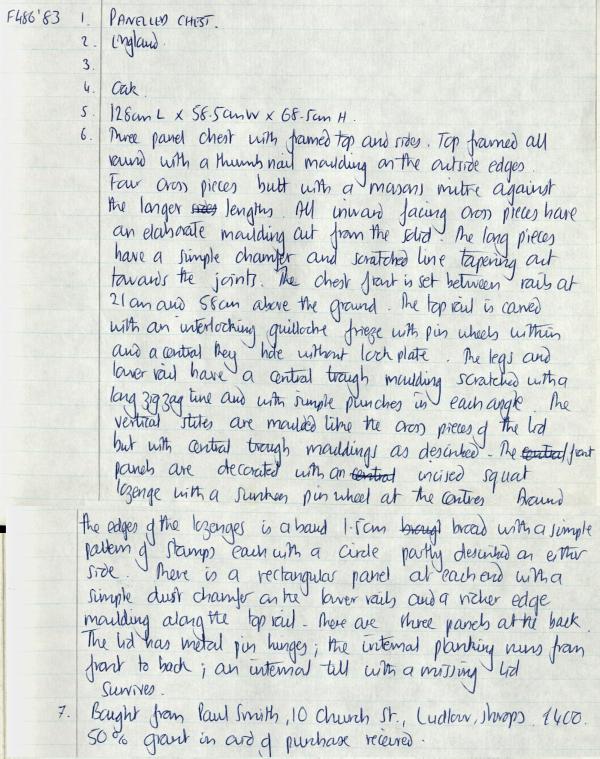 F486'83 1. PANELLED CHEST.
2. England.
3.
4. Oak.
5. 128cm L x 58.5cm W x 68.5cm H.
6. Three panel chest with framed top and sides. Top framed all
round with a thumbnail moulding on the outside edges.
Four cross pieces butt with a masons mitre against
the longer sizes lengths. All inward facing cross pieces have
an elaborate moulding cut from the solid. The long pieces
have a simple chamfer and scratched line tapering out
towards the joints. The chest front is set between rails at
21cm and 58cm above the ground. The top rail is carved
with an interlocking guilloche frieze with pin wheels within
and a central key hole without lock plate. The legs and
lower rail have a central trough moulding scratched with a
long zig zag line and with simple punches in each angle. The
vertical stiles are moulded like the cross pieces of the lid
but with central trough mouldings as described. The central front
panels are decorated with an central incised squat
lozenge with a sunken pin wheel at the centres Around
the edges of the lozenges is a band 1.5cm broug broad with a simple
pattern of stamps each with a circle partly described on either
side. There is a rectangular panel at each end with a
simple dust chamfer on the lower rails and a richer edge
moulding along the top rail. There are three panels at the back.
The lid has metal pin hinges; the internal planking runs from
front to back; an internal till with a missing lid
survives.
7. Bought from Paul Smith, 10 Church St., Ludlow, Shrops. £400.
50% grant in aid of purchase received.